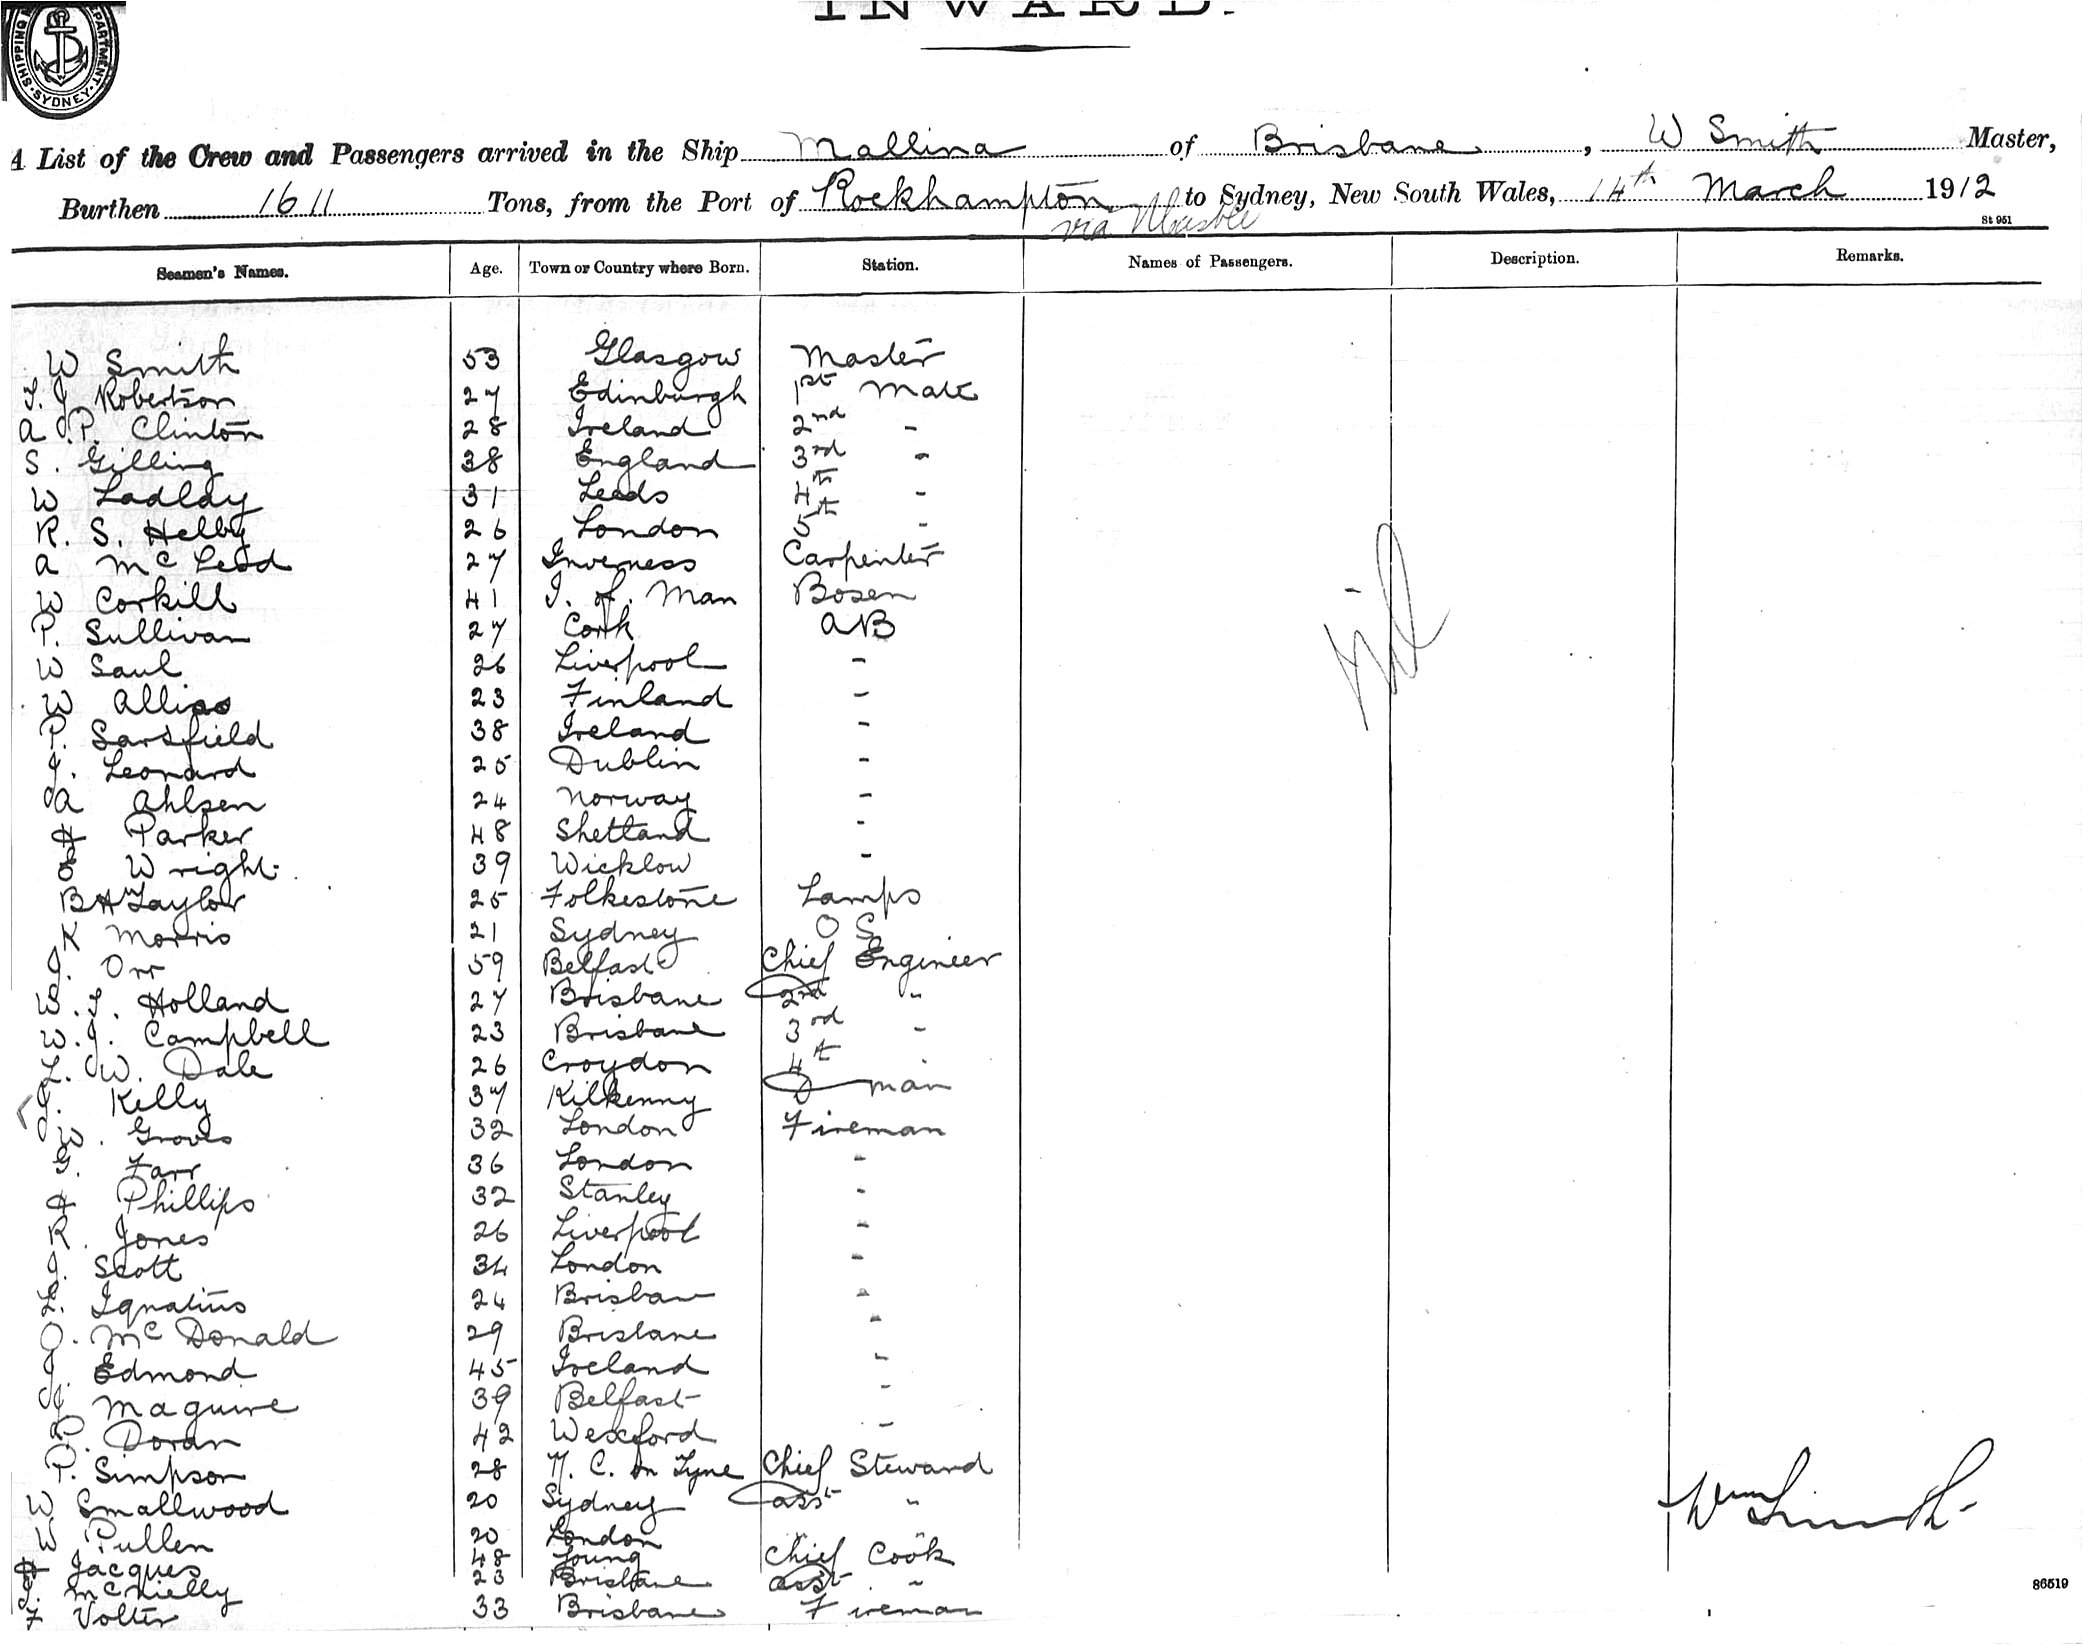 INWARD.
SHIPPING DEPARTMENT SYDNEY
A List of the Crew and Passengers arrived in the Ship Mallina of Brisbane, W Smith Master,
Burthen 1611 Tons, from the Port of Rockhampton to Sydney, New South Wales, 14th March 1912
via
St 961
Seamen's Names. Age. Town or Country where Born. Station. Names of Passengers. Description. Remarks.
W Smith 53 Glasgow Master
T. J Robertson 27 Edinburgh 1st Mate
A. P. Clinton 28 Ireland 2nd "
S. Gilling 38 England 3rd "
W Ladlay 31 Leeds 4th "
R. S. Helby 26 London 5th "
A McLeod 27 Inverness Carpenter
W Corkill 41 I. of. Man Bosen
P. Sullivan 27 Cork AB
W Saul 26 Liverpool "
W Alliss 23 Finland "
P. Sarsfield 38 Ireland "
J. Leonard 25 Dublin "
A Ahlsen 24 Norway "
H Parker 48 Shetland "
E Wright 39 Wicklow "
B H Taylor 25 Folkestone Lamps
K Morris 21 Sydney O S
J. Orr 59 Belfast Chief Engineer
W. T. Holland 27 Brisbane 2nd "
W. J. Campbell 23 Brisbane 3rd "
L. W. Dale 26 Croydon 4th "
J. Kelly 37 Kilkenny D man
W. Groves 32 London Fireman
G. Farr 36 London "
H Phillips 32 Stanley "
R. Jones 26 Liverpool "
J. Scott 34 London "
L. Ignatius 24 Brisbane "
O. McDonald 29 Brisbane "
J. Edmond 45 Ireland "
J. Maguire 39 Belfast "
P. Doran 42 Wexford "
P. Simpson 28 N. C. on Tyne Chief Steward
W Smallwood 20 Sydney asst "
W Pullen 20 London "
H Jacques 48 Young Chief Cook
J. McNielly 23 Brisbane asst "
F Volter 33 Brisbane Fireman
Nil
Wm Smith
86519